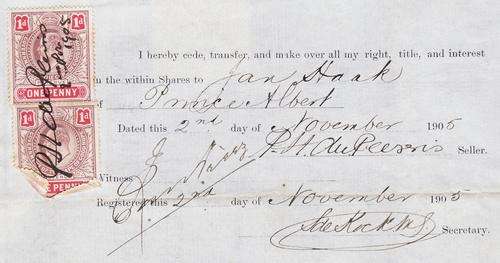 1d 1d
ONE PENNY
1905
I hereby cede, transfer, and make over all my right, title, and interest
in the within Shares to Jan Haak
of Prince Albert
1d 1d
Dated this 2nd day of November 1905
P. H. du Plessis Seller.
E PENNY
Witness
Registered this 2nd day of November 1905
Secretary.